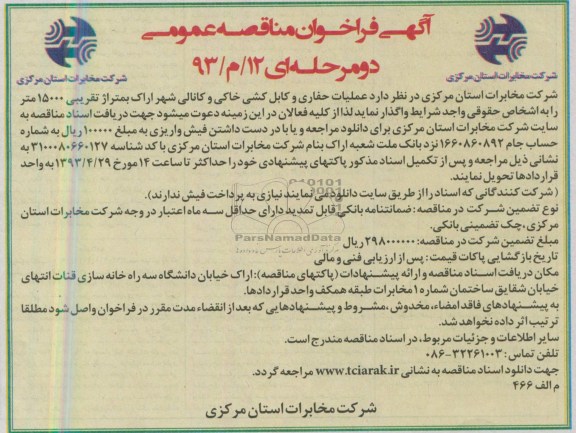 آگهی فراخوان مناقصه عمومی
دومرحله‌ای ۹۳/م/۱۲
شرکت مخابرات استان مرکزی
شرکت مخابرات استان مرکزی
شرکت مخابرات استان مرکزی در نظر دارد عملیات حفاری و کابل کشی خاکی و کانالی شهر اراک بمتراژ تقریبی ۱۵۰۰۰ متر
را به اشخاص حقوقی واجد شرایط واگذار نماید لذا از کلیه فعالان در این زمینه دعوت میشود جهت دریافت اسناد مناقصه به
سایت شرکت مخابرات استان مرکزی برای دانلود مراجعه و یا با در دست داشتن فیش واریزی به مبلغ ۱۰۰۰۰۰ ریال به شماره
حساب جام ۱۶۶۰۸۶۰۸۹۲ نزد بانک ملت شعبه اراک بنام شرکت مخابرات استان مرکزی با کد شناسه ۳۱۰۰۰۸۰۶۶۰۱۲۷ به
نشانی ذیل مراجعه و پس از تکمیل اسناد مذکور پاکتهای پیشنهادی خود را حداکثر تا ساعت ۱۴ مورخ ۱۳۹۳/۴/۲۹ به واحد
قراردادها تحویل نمایند.
(شرکت کنندگانی که اسناد را از طریق سایت دانلود می نمایند نیازی به پرداخت فیش ندارند).
نوع تضمین شرکت در مناقصه: ضمانتنامه بانکی قابل تمدید دارای حداقل سه ماه اعتبار در وجه شرکت مخابرات استان
مرکزی، چک تضمینی بانکی.
مبلغ تضمین شرکت در مناقصه: ۲۹۸۰۰۰۰۰۰ ریال
تاریخ بازگشایی پاکات قیمت: پس از ارزیابی فنی و مالی
مکان دریافت اسناد مناقصه و ارائه پیشنهادات (پاکتهای مناقصه): اراک خیابان دانشگاه سه راه خانه سازی قنات انتهای
خیابان شقایق ساختمان شماره ۱ مخابرات طبقه همکف واحد قراردادها.
به پیشنهادهای فاقد امضاء، مخدوش، مشروط و پیشنهادهایی که بعد از انقضاء مدت مقرر در فراخوان واصل شود مطلقا
ترتیب اثر داده نخواهد شد.
سایر اطلاعات و جزئیات مربوط، در اسناد مناقصه مندرج است.
تلفن تماس: ۳۲۲۶۱۰۰۳-۰۸۶
جهت دانلود اسناد مناقصه به نشانی www.tciarak.ir مراجعه گردد.
م الف ۴۶۶
شرکت مخابرات استان مرکزی
ParsNamadData